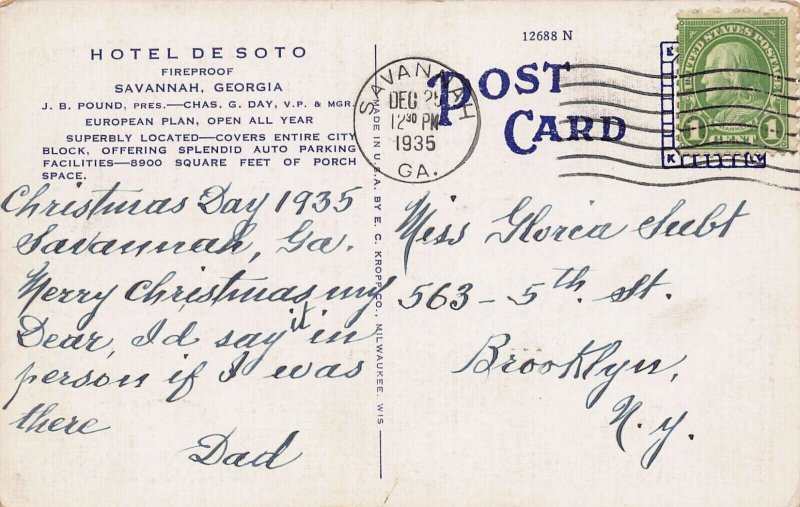 HOTEL DE SOTO
FIREPROOF
SAVANNAH, GEORGIA
J. B. POUND, PRES.—CHAS. G. DAY, V.P. & MGR.
EUROPEAN PLAN, OPEN ALL YEAR
SUPERBLY LOCATED—COVERS ENTIRE CITY
BLOCK, OFFERING SPLENDID AUTO PARKING
FACILITIES—8900 SQUARE FEET OF PORCH
SPACE.
Christmas Day 1935
Savannah, Ga.
Merry Christmas my
Dear, I'd say it in
person if I was
there
Dad
MADE IN U.S.A. BY E. C. KROPP CO., MILWAUKEE, WIS
12688 N
POST
CARD
SAVANNAH
DEC 25
12 30 PM
1935
GA.
UNITED STATES POSTAGE
FRANKLIN
1 CENT 1
K K
Miss Gloria Subt
563 - 5th. St.
Brooklyn,
N.Y.